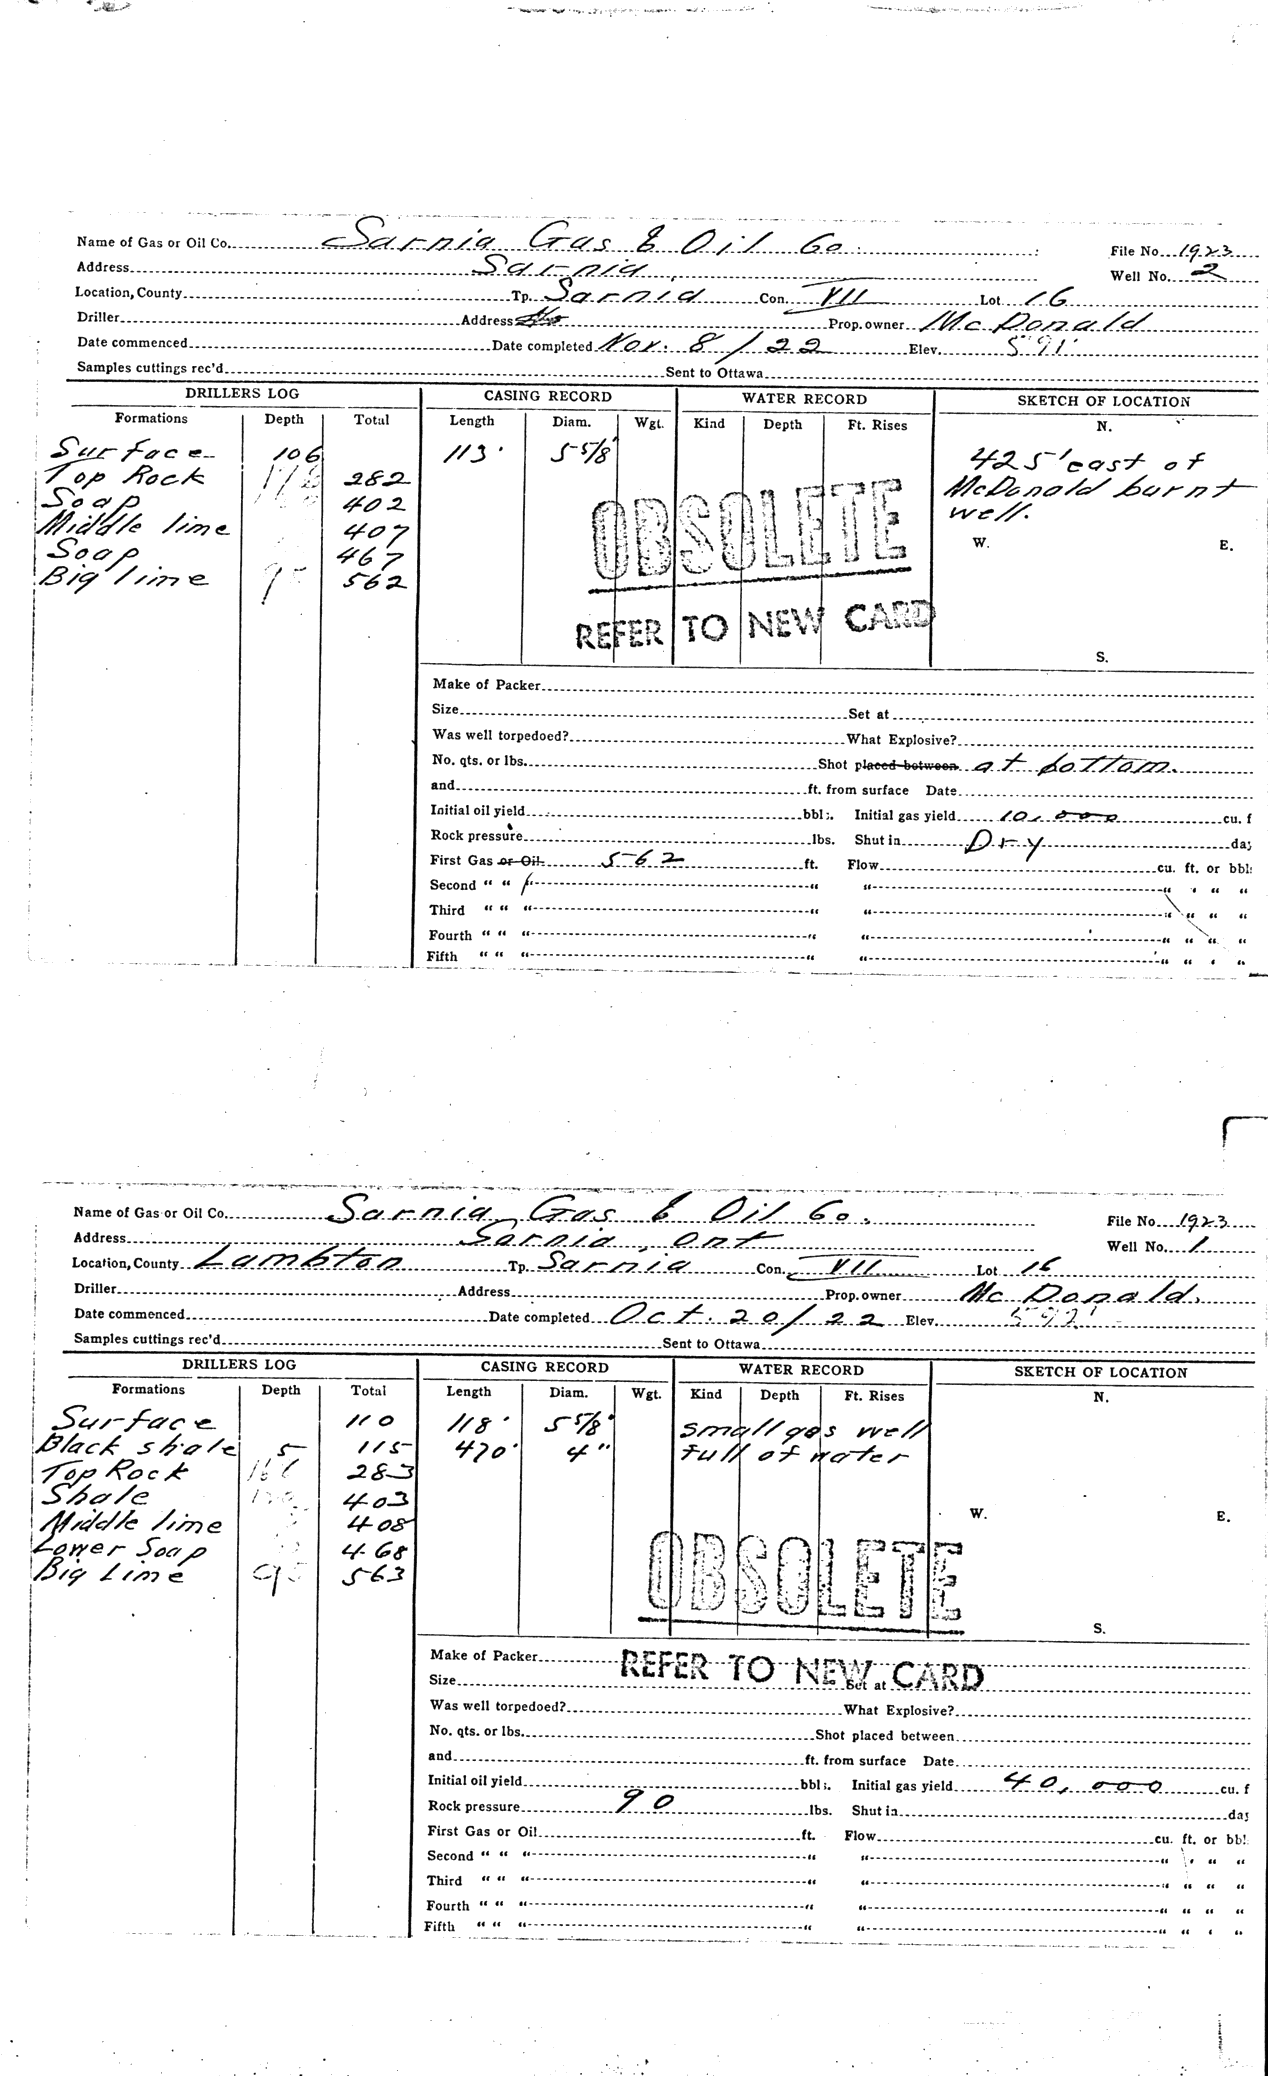 Name of Gas or Oil Co. Sarnia Gas & Oil Co. File No. 1923
Address Sarnia, Well No. 2
Location, County Tp. Sarnia Con. VII Lot 16
Driller Address Prop. owner McDonald
Date commenced Date completed Nov. 8/22 Elev. 591'
Samples cuttings rec'd Sent to Ottawa
DRILLERS LOG CASING RECORD WATER RECORD SKETCH OF LOCATION
Formations Depth Total Length Diam. Wgt. Kind Depth Ft. Rises N.
Surface 106 113' 5 5/8" 425' east of
Top Rock 282 McDonald burnt
Soap 402 well.
Middle lime 407 W. E.
Soap 467
Big lime 95 562
OBSOLETE
REFER TO NEW CARD
S.
Make of Packer
Size Set at
Was well torpedoed? What Explosive?
No. qts. or lbs. Shot placed between at bottom.
and ft. from surface Date
Initial oil yield bbls. Initial gas yield 10,000 cu. f
Rock pressure lbs. Shut in Dry day
First Gas or Oil 562 ft. Flow cu. ft. or bbl
Second " " " " " " " "
Third " " " " " " " "
Fourth " " " " " " " "
Fifth " " " " " " " "
Name of Gas or Oil Co. Sarnia Gas & Oil Co. File No. 1923
Address Sarnia, Ont Well No. 1
Location, County Lambton Tp. Sarnia Con. VII Lot 16
Driller Address Prop. owner McDonald.
Date commenced Date completed Oct. 20/22 Elev. 592'
Samples cuttings rec'd Sent to Ottawa
DRILLERS LOG CASING RECORD WATER RECORD SKETCH OF LOCATION
Formations Depth Total Length Diam. Wgt. Kind Depth Ft. Rises N.
Surface 110 118' 5 5/8" small gas well
Black shale 5 115 470' 4" full of water
Top Rock 283
Shale 403
Middle lime 408 W. E.
Lower Soap 468
Big Lime 95 563
OBSOLETE
S.
REFER TO NEW CARD
Make of Packer
Size Set at
Was well torpedoed? What Explosive?
No. qts. or lbs. Shot placed between
and ft. from surface Date
Initial oil yield bbls. Initial gas yield 40,000 cu. f
Rock pressure 90 lbs. Shut in day
First Gas or Oil ft. Flow cu. ft. or bbl
Second " " " " " " " "
Third " " " " " " " "
Fourth " " " " " " " "
Fifth " " " " " " " "